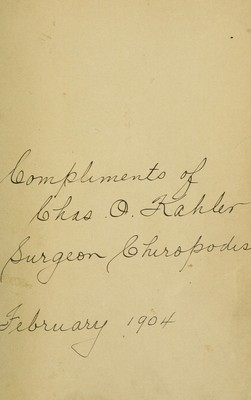 Compliments of
Chas. O. Kahler
Surgeon Chiropodis
February 1904